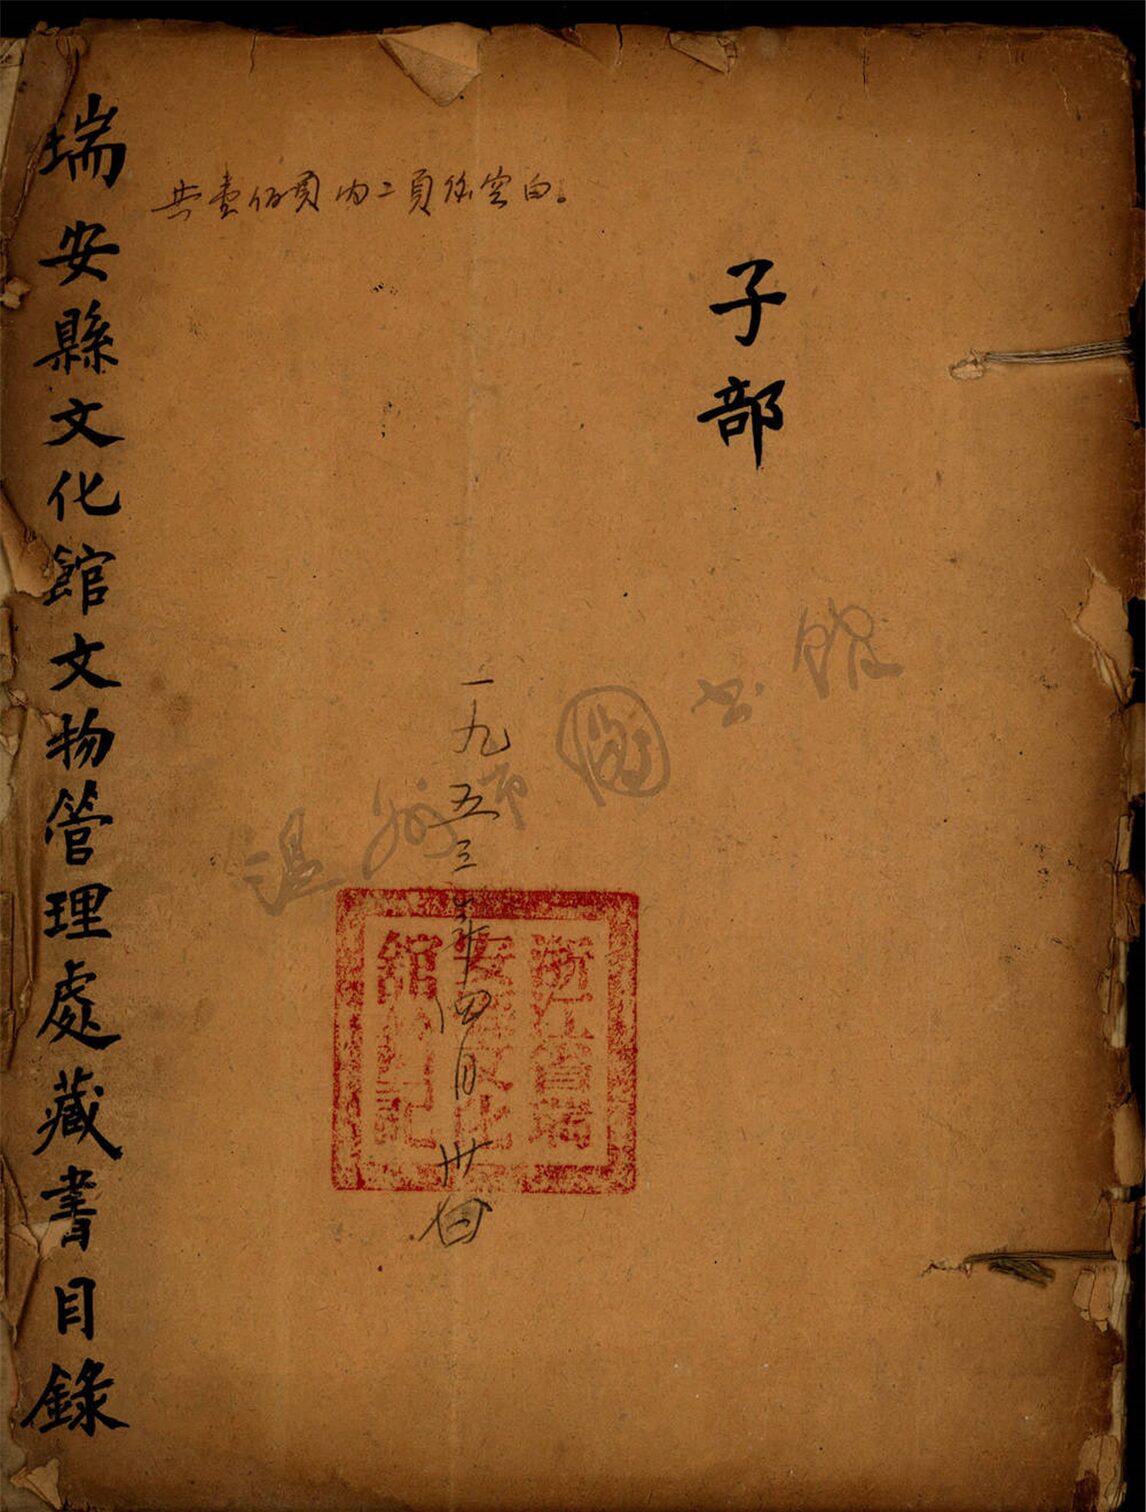 子部
共壹佰頁内二頁係空白。
一九五三年四月卅日
浙江省瑞
安縣文化
館
瑞安縣文化館文物管理處藏書目錄
温州市圖书館